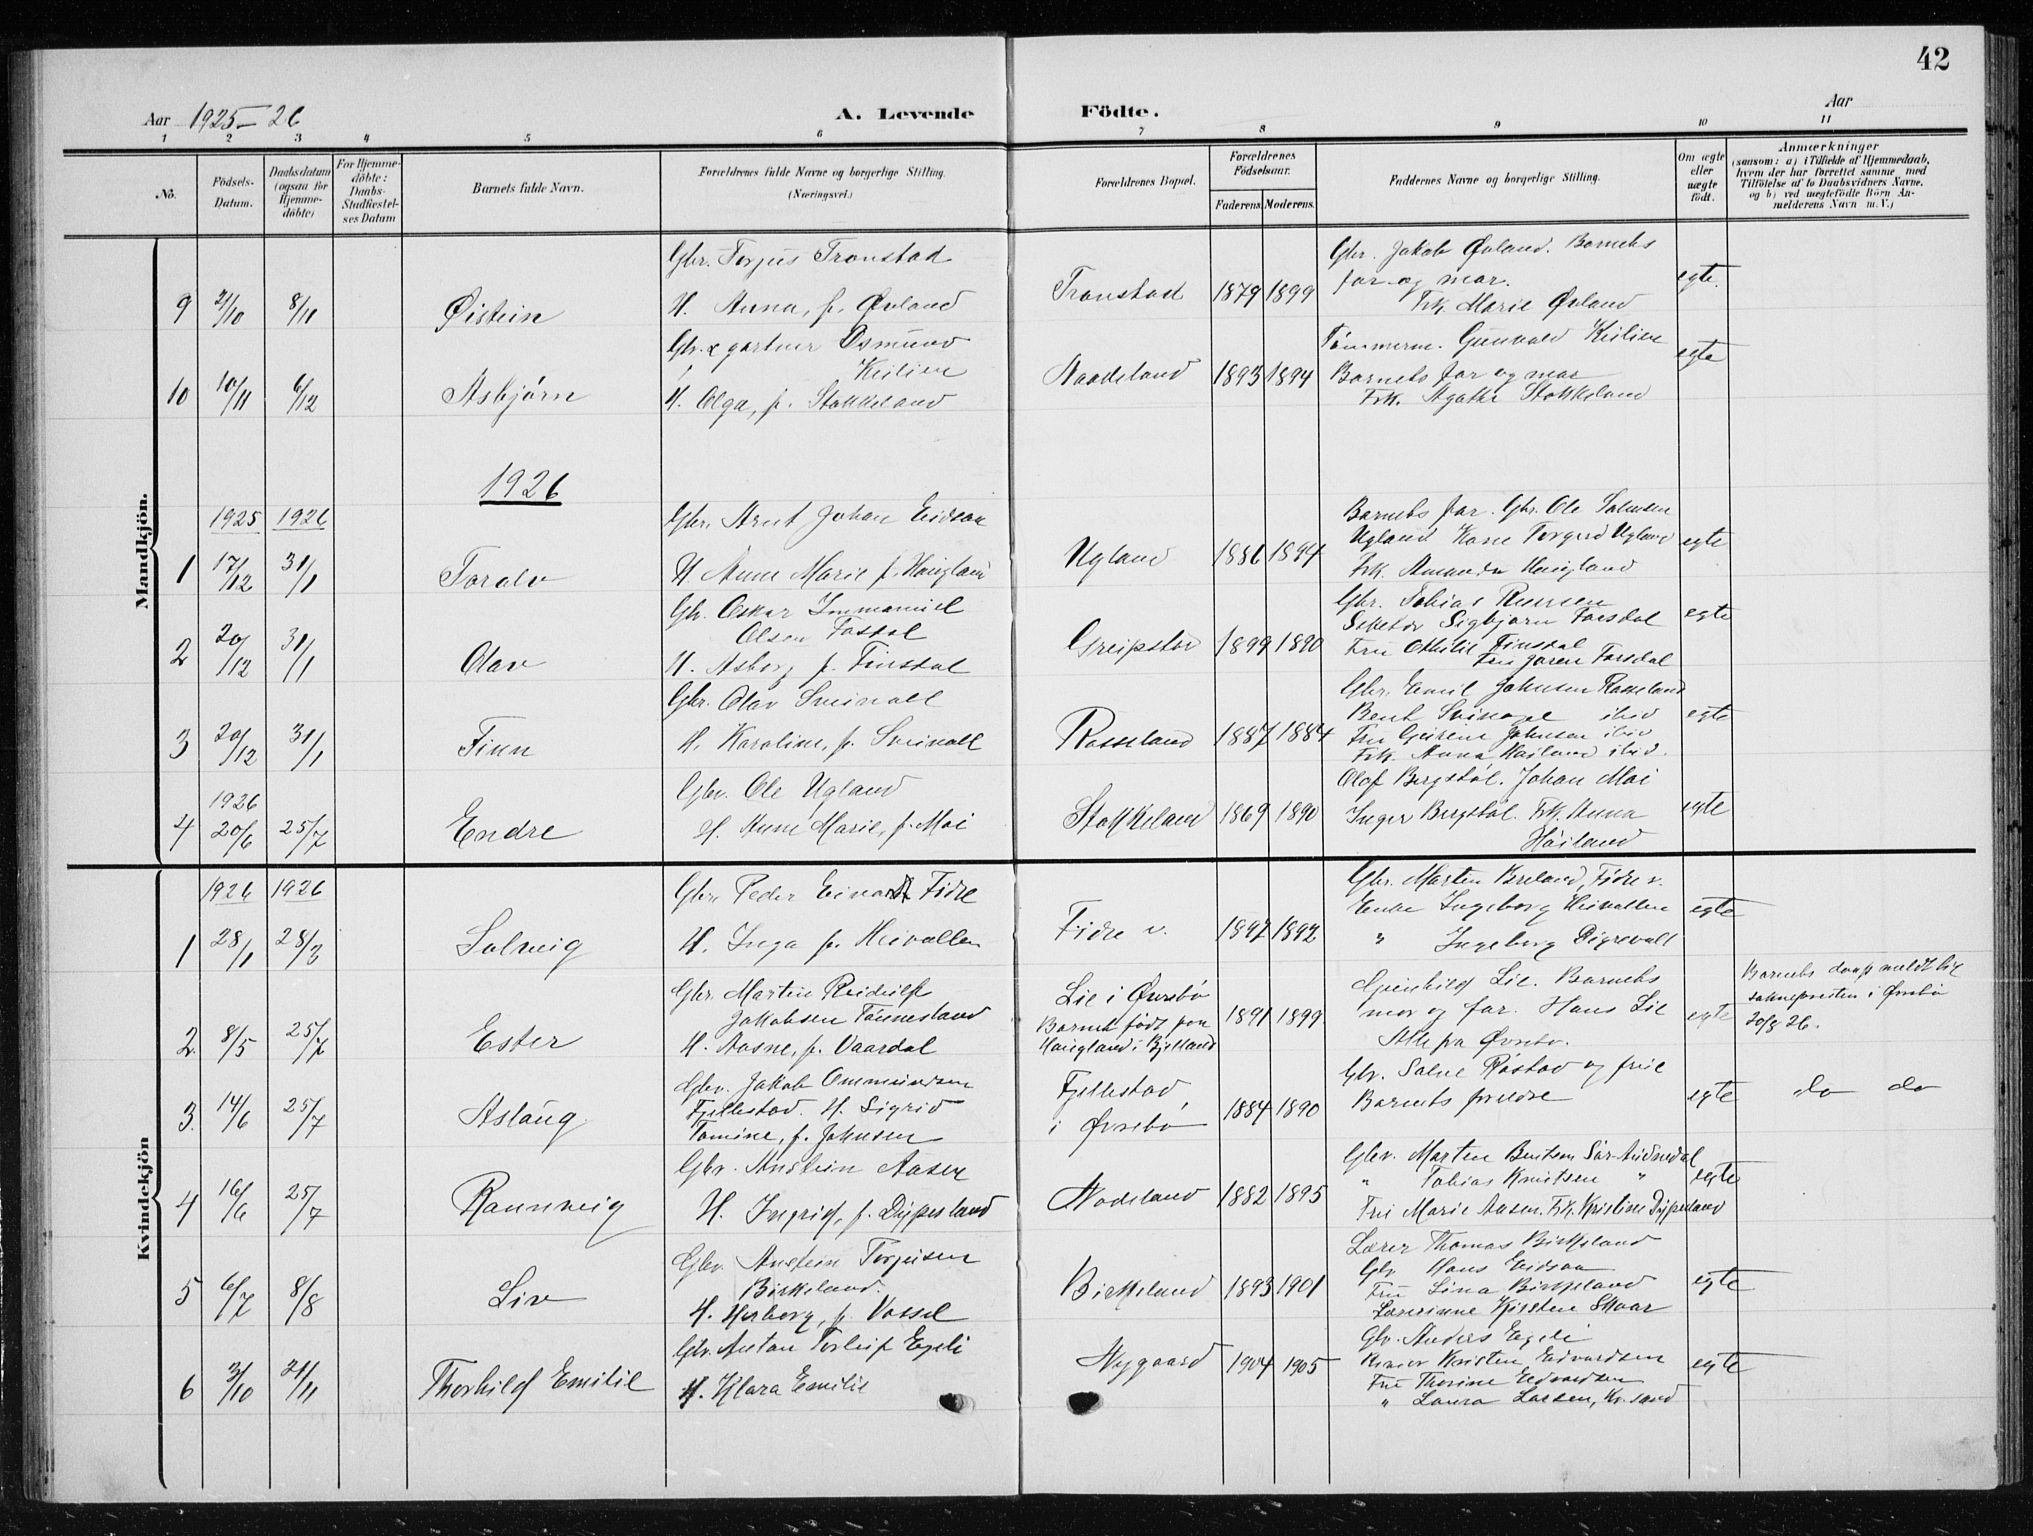 42
Aar 1925-26
A. Levende Födte.
Aar
1 2 3 4 5 6 7 8 9 10 11
No.
Födsels-Datum.
Daabsdatum (ogsaa for Hjemme-döbte)
For Hjemme-döbte: Daabs-Stadfæstel-ses Datum
Barnets fulde Navn.
Forældrenes fulde Navne og borgerlige Stilling. (Næringsvei.)
Forældrenes Bopæl.
Forældrenes Födselsaar.
Faderens. Moderens.
Faddernes Navne og borgerlige Stilling.
Om ægte eller uægte født.
Anmærkninger
(saasom: a) i Tilfælde af Hjemmedaab,
hvem der har forrettet samme, med
Tilföielse af to Daabsvidners Navne,
og b) ved uegtefödte Börn An-
melderens Navn m. V.)
Mandkjön.
Gbr. Torjus Tronstad
9 2/10 8/11 Øistein
H. Anna, f. Øvland
Tronstad 1879 1899
Gbr. Jakob Øvland. Barnets
far og mor.
Frk. Marie Øvland
egte.
Gbr. & gartner Osmund
Keilien
10 10/11 6/12 Asbjørn
H. Olga, f. Stokkeland
Naadeland 1893 1894
Tömmerm. Gunvald Keilien
Barnets far og mor
Frk. Agathe Stokkeland
egte
1926
1925 1926
Gbr. Arnt Johan Eidsaa
1 17/12 31/1 Toralv
H. Anne Marie f. Haugland
Ugland 1886 1894
Barnets far. Gbr. Ole Salvesen
Ugland Kone Torgerd Ugland
Frk. Amanda Haugland
egte
Gbr. Oskar Immanuel
Olsen Fasdal
2 20/12 31/1 Olav
H. Asborg f. Finsdal
Greipstad 1899 1890
Gbr. Tobias
Sigbjørn Farsdal
Fru Othilie Finsdal
Fru Farsdal
egte
Gbr. Olav Sveinall
3 20/12 31/1 Finn
H. Karoline, f. Sveinall
Rosseland 1887 1884
Gbr. Emil Johnsen Rosseland
Bent ibid
Fru Johnsen ibid
Frk. Anna ibid.
egte
Gbr. Ole Ugland
1926
4 20/6 25/7 Endre
H. Anne Marie, f. Moi
Stokkeland 1869 1890
Olaf Bergstøl. Johan Moi
Inger Bergstøl. Frk. Anna
Høiland
egte
Kvindekjön
1926 1926
Gbr. Peder Einar Fidje
1 28/1 28/3 Solveig
H. Inga f. Heivollen
Fidje v. 1897 1892
Gbr. Martin Breland, Fidje v.
Enke Ingeborg Heivollen
" Ingeborg
egte
Gbr. Martin Reidulf
Jakobsen Tønnesland
2. 8/5 25/7 Ester
H. Aasne, f. Vaardal
Lie i Øvrebø
Barnet født paa
Haugland i Bjelland
1891 1899
Gunhild Lie. Barnets
mor og far. Hans Lie
Alle fra Øvrebø.
egte
Barnets daap meldt til
soknepresten i Øvrebø
20/8 26.
Gbr. Jakob Ommundsen
Fjellestad. H. Sigrid
3. 14/6 25/7 Aslaug
Tomine, f. Johnsen
Fjellestad,
i Øvrebø
1884 1890
Gbr. Salve Røstad og frue
Barnets foreldre
egte
do do
Gbr. Anstein Aasen
4 16/6 25/7 Rannveig
H. Ingrid, f. Dypesland
Nodeland 1882 1895
Gbr. Martin Bentsen Sør-Audnedal
" Tobias Knutsen "
Fru Marie Aasen. Frk. Kristine Dypesland
egte
Gbr. Anstein Torjusen
Birkeland.
5 6/7 8/8 Liv
H. Herborg, f. Vassel
Birkeland 1893 1901
Lærer Thomas Birkeland
Gbr Hans Eidsaa
Fru Lina Birkeland
Lærerinne Kirsten Skaar
egte
Gbr. Anton Torleif Egeli
6 3/10 21/11 Thorhild Emilie
H. Klara Emilie
Nygaard 1904 1905
Gbr. Anders Egeli
Kristen Edvardsen
Fru Thorine Edvardsen
" Laura Larsen, Kr.sand
egte